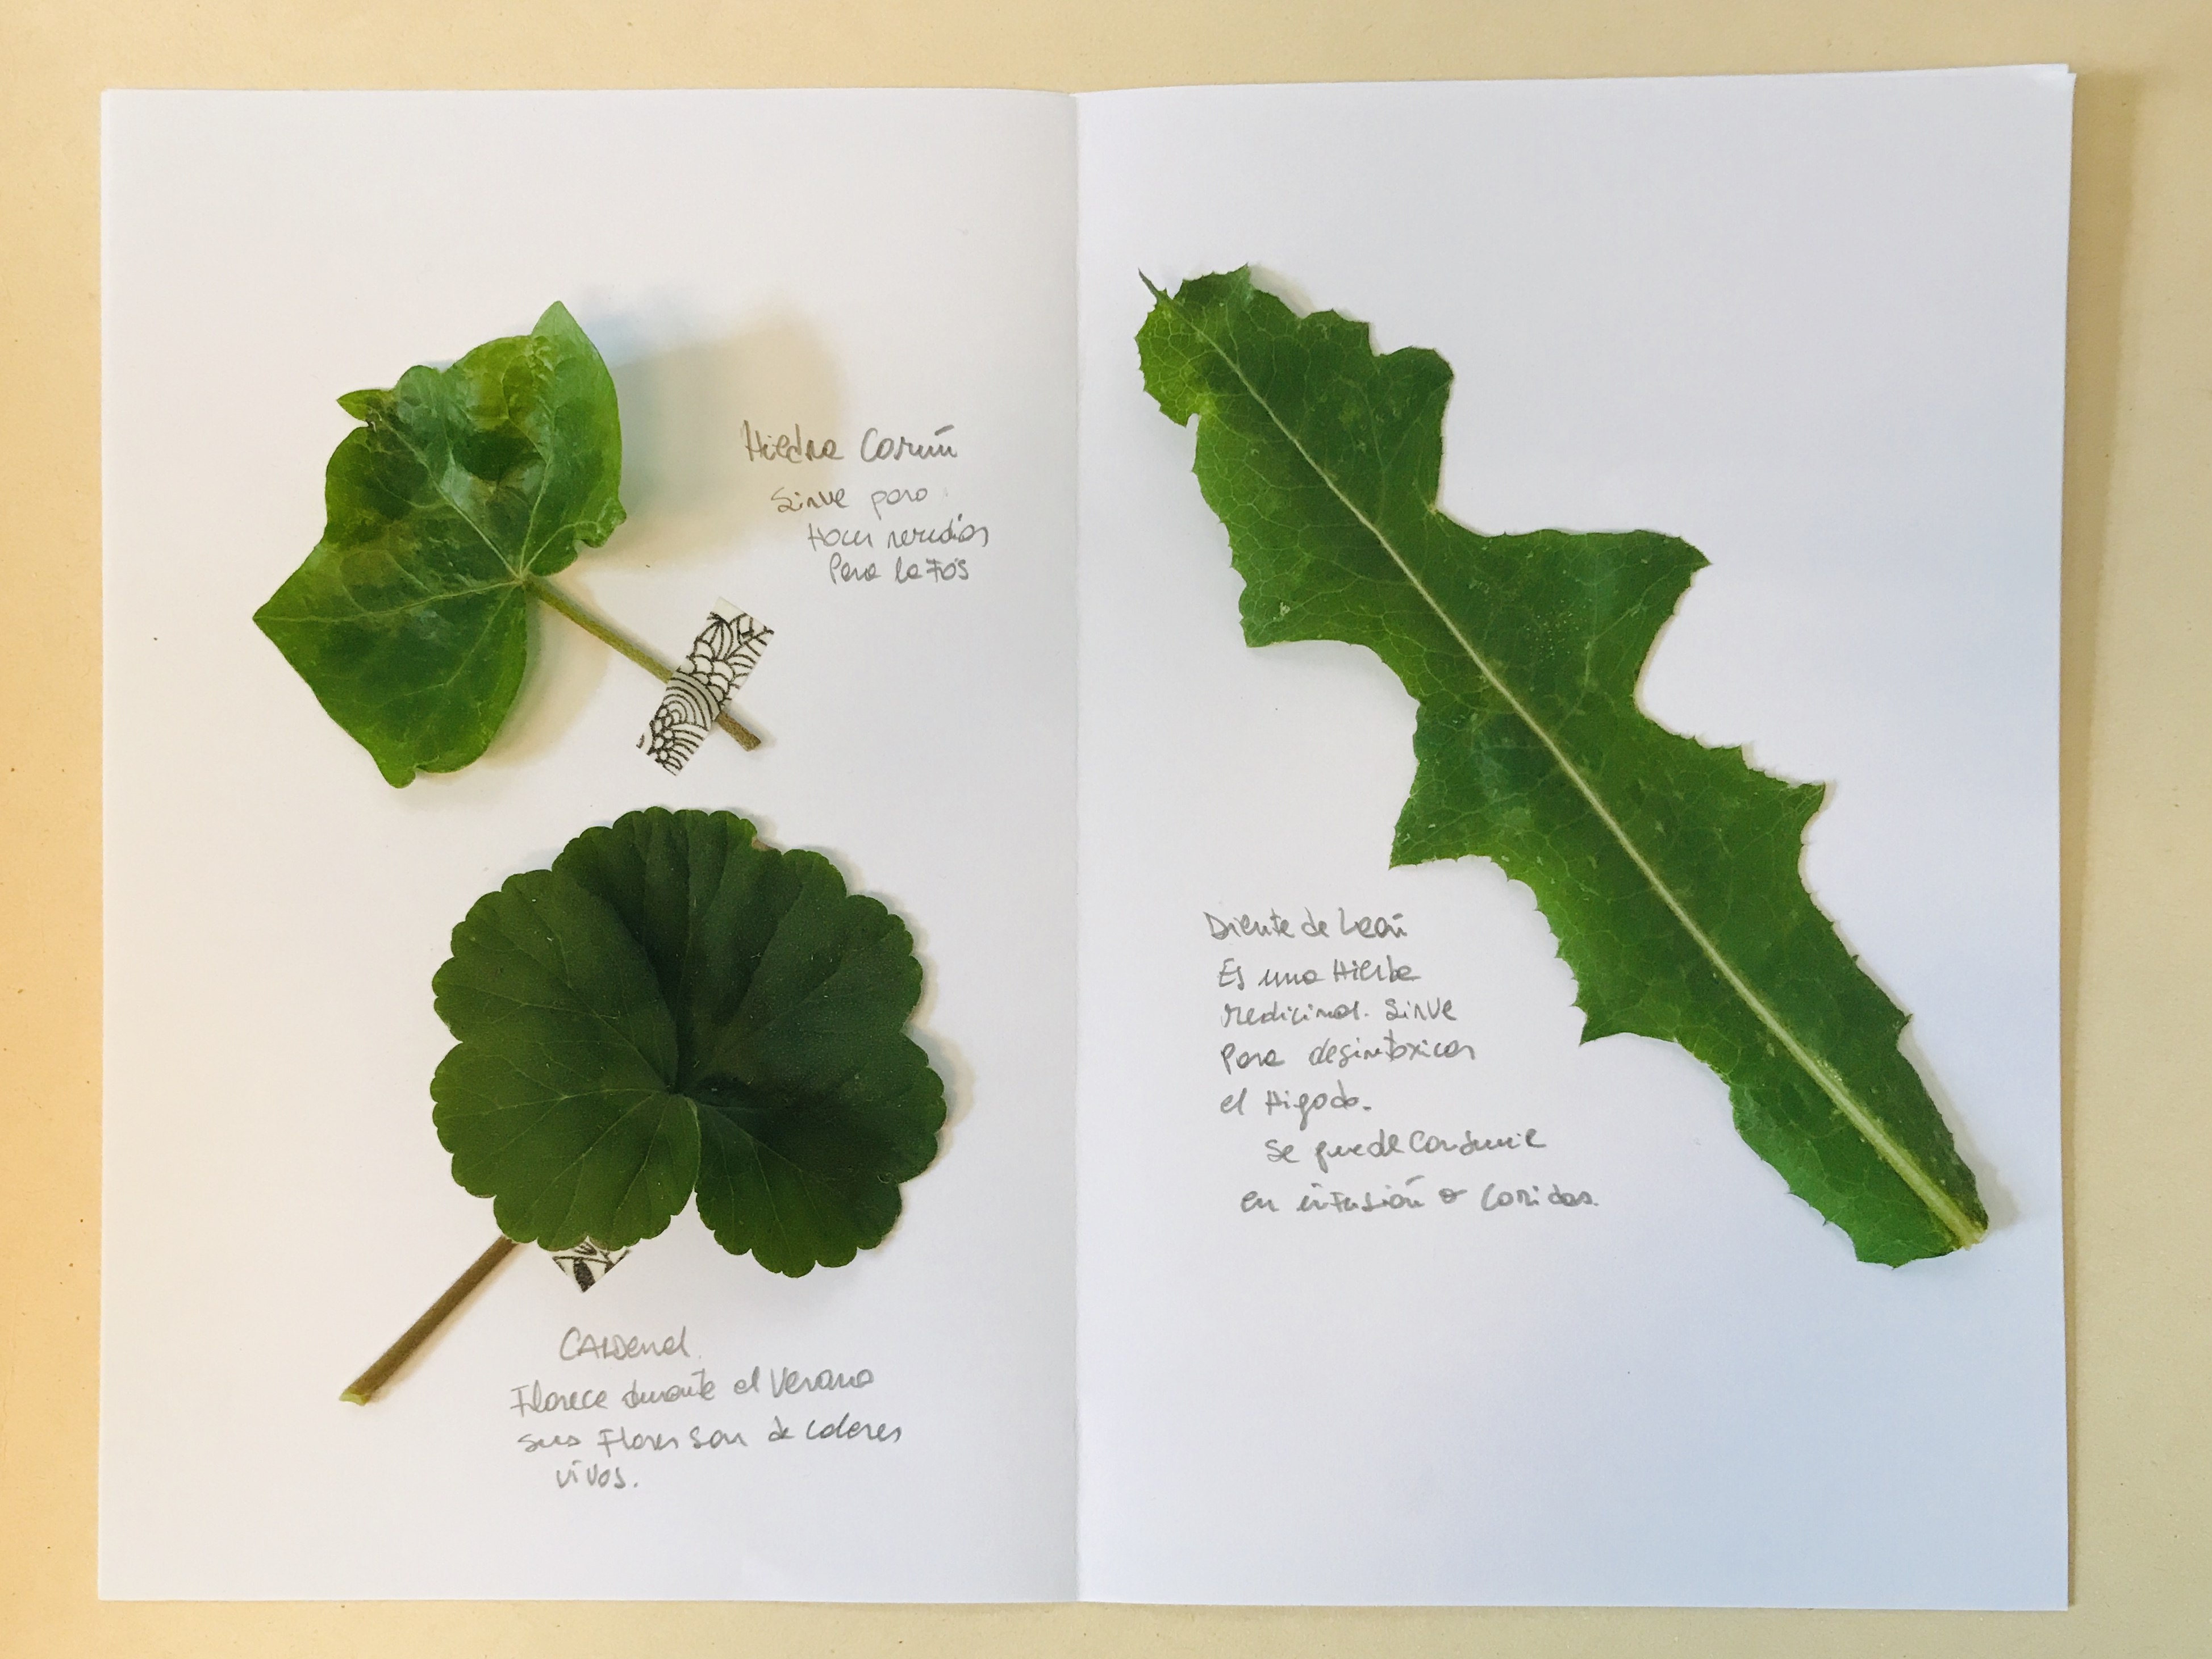 Hiedra Común
Sirve para
Hacer remedios
Para la Tos
CARDenal.
Florece durante el Verano
sus Flores son de colores
vivos.
Diente de León
Es una Hierba
medicinal. Sirve
Para desintoxicar
el Higado.
Se puede Consumir
en infusión o Comidas.